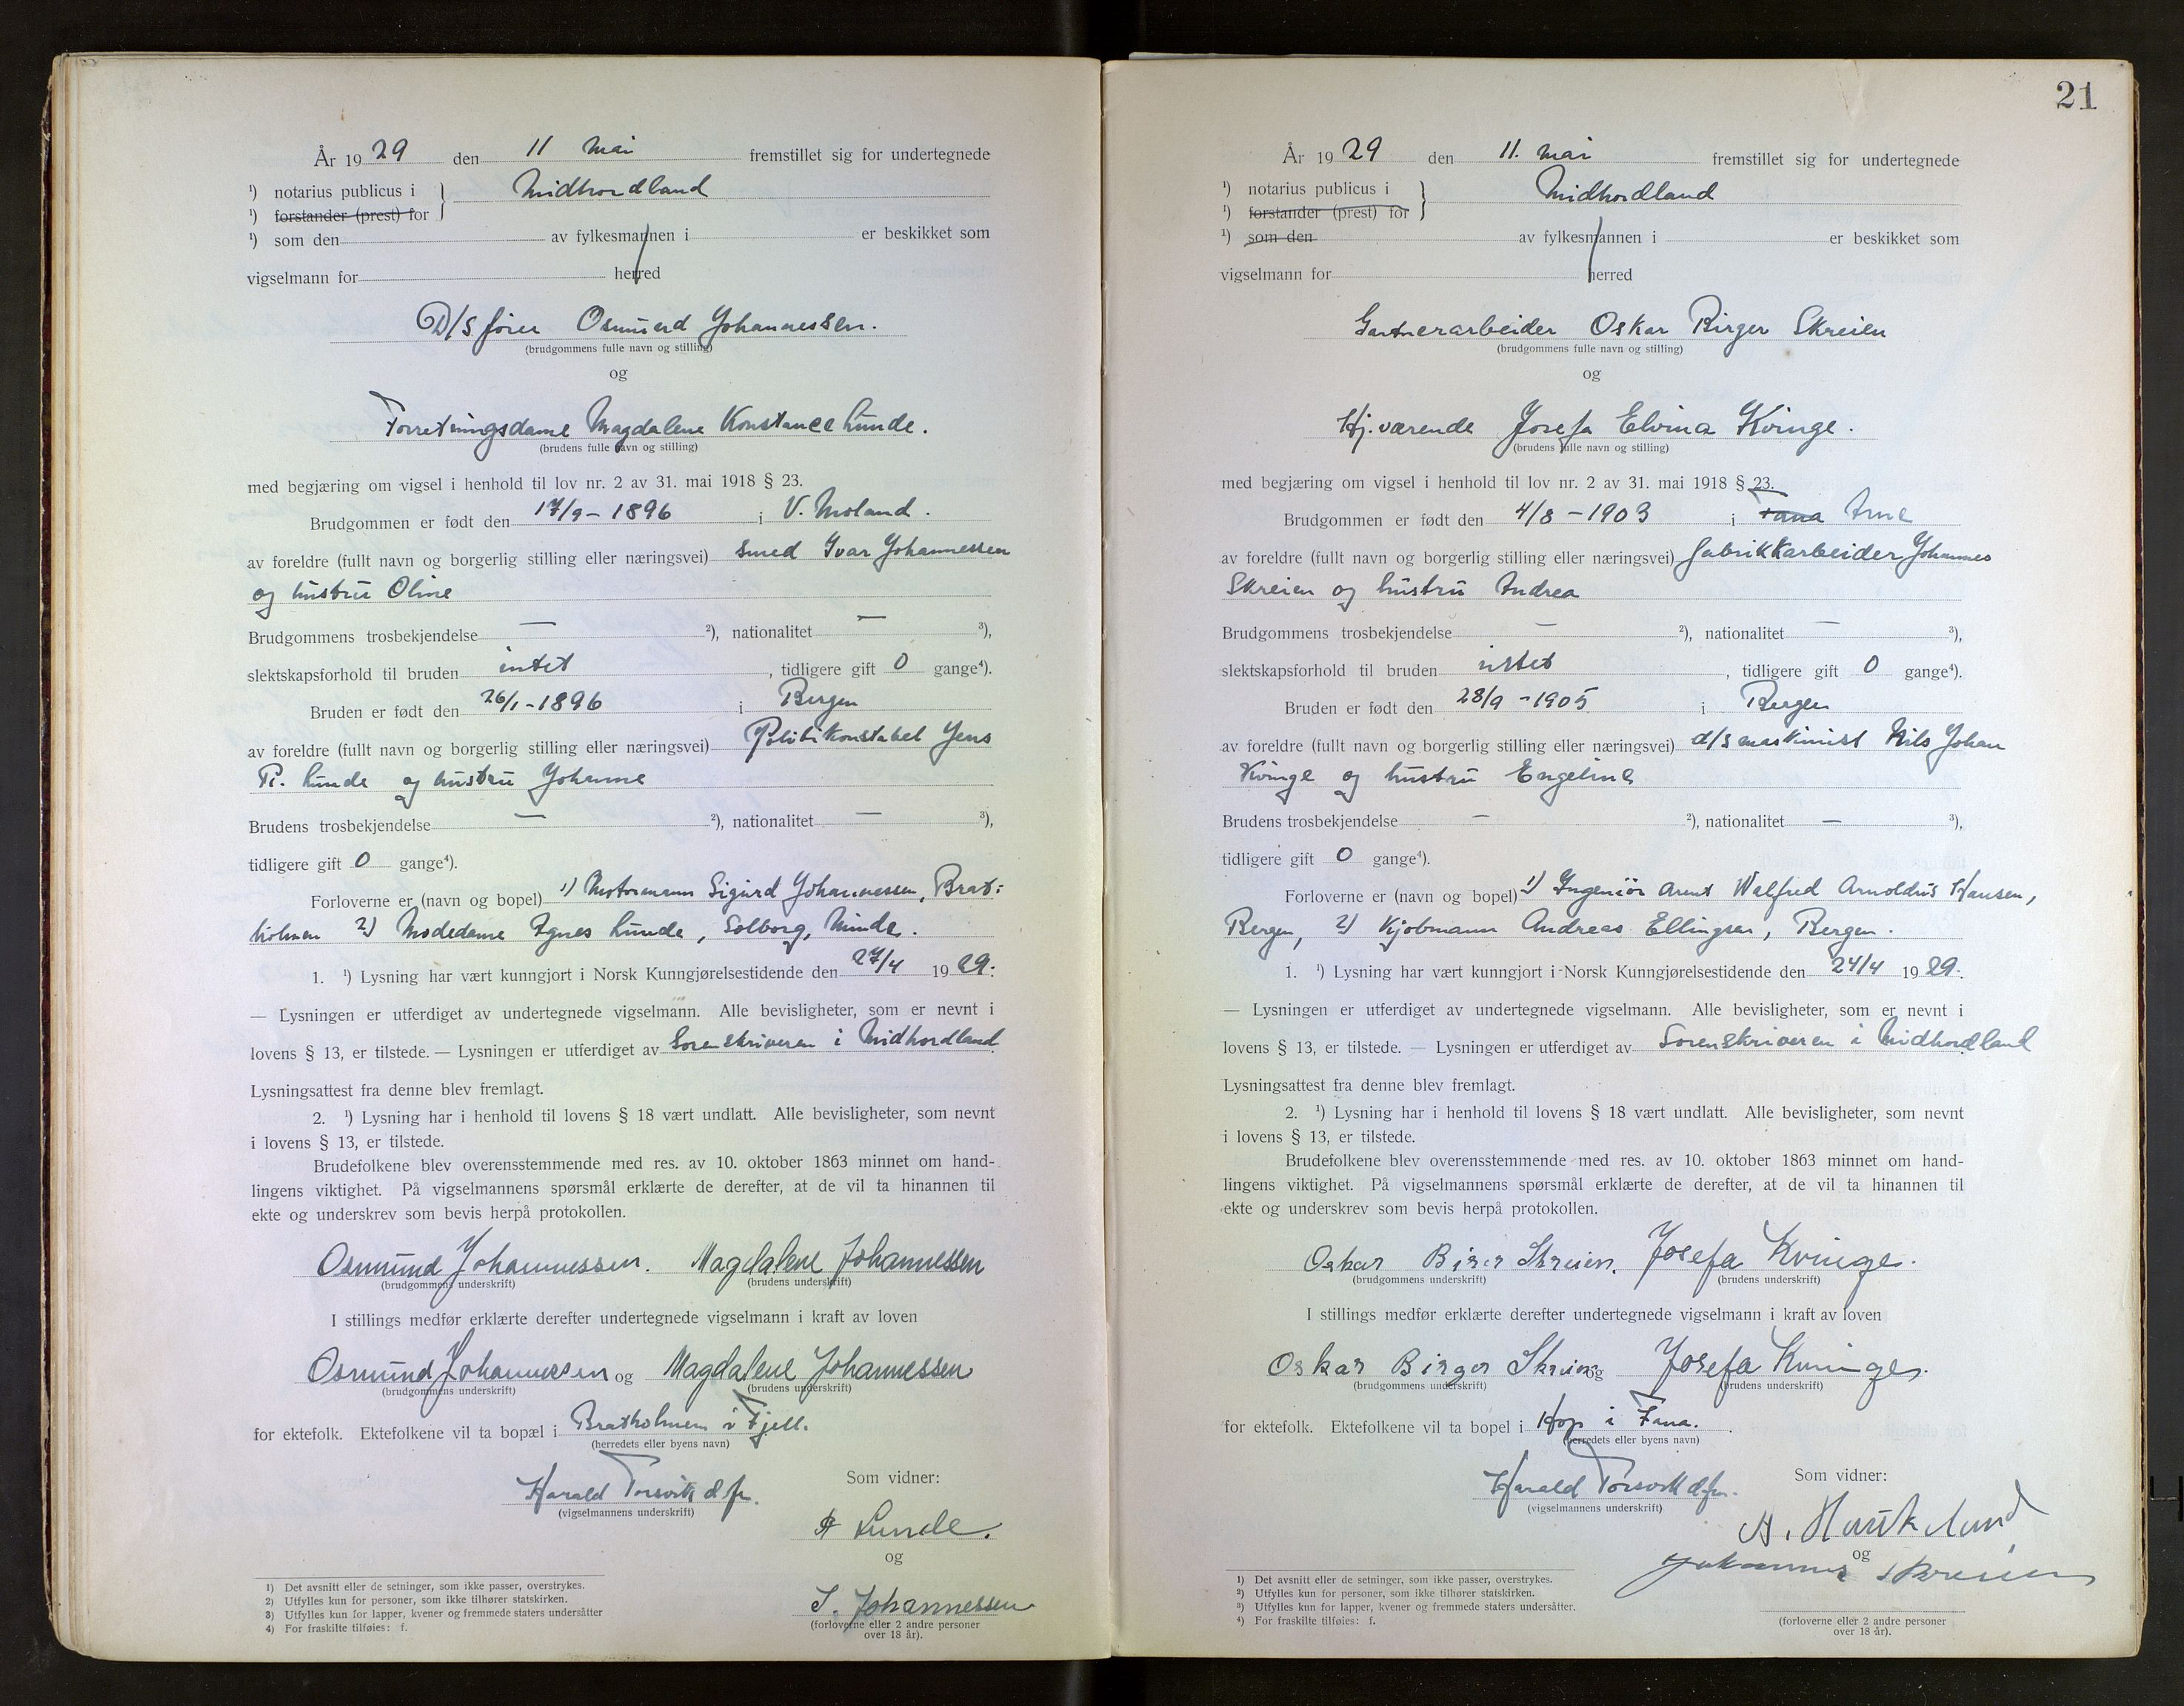 År 1929 den 11 Mai fremstillet sig for undertegnede
¹) notarius publicus i } Midhordland
¹) forstander (prest) for
¹) som den av fylkesmannen i er beskikket som
vigselmann for herred
D/S fører Osmund Johannessen.
(brudgommens fulle navn og stilling)
og
Forretningsdame Magdalene Konstance Lunde.
(brudens fulle navn og stilling)
med begjæring om vigsel i henhold til lov nr. 2 av 31. mai 1918 § 23.
Brudgommen er født den 17/9 - 1896 i V. Moland.
av foreldre (fullt navn og borgerlig stilling eller næringsvei) Smed Ivar Johannessen
og hustru Oline
Brudgommens trosbekjendelse — ²), nationalitet — ³),
slektskapsforhold til bruden intet, tidligere gift 0 gange⁴).
Bruden er født den 26/1 - 1896 i Bergen
av foreldre (fullt navn og borgerlig stilling eller næringsvei) Politikonstabel Jens
R. Lunde og hustru Johanne
Brudens trosbekjendelse — ²), nationalitet — ³),
tidligere gift 0 gange⁴).
Forloverne er (navn og bopel) 1) Motormann Sigurd Johannessen, Brat=
holmen 2) Modedame Agnes Lunde, Solborg, Minde.
1. ¹) Lysning har vært kunngjort i Norsk Kunngjørelsestidende den 27/4 1929.
— Lysningen er utferdiget av undertegnede vigselmann. Alle bevisligheter, som er nevnt i
lovens § 13, er tilstede. — Lysningen er utferdiget av Sorenskriveren i Midhordland
Lysningsattest fra denne blev fremlagt.
2. ¹) Lysning har i henhold til lovens § 18 vært undlatt. Alle bevisligheter, som nevnt
i lovens § 13, er tilstede.
Brudefolkene blev overensstemmende med res. av 10. oktober 1863 minnet om hand-
lingens viktighet. På vigselmannens spørsmål erklærte de derefter, at de vil ta hinannen til
ekte og underskrev som bevis herpå protokollen.
Osmund Johannessen. Magdalene Johannessen
(brudgommens underskrift) (brudens underskrift)
I stillings medfør erklærte derefter undertegnede vigselmann i kraft av loven
Osmund Johannessen og Magdalene Johannessen
(brudgommens underskrift) (brudens underskrift)
for ektefolk. Ektefolkene vil ta bopæl i Bratholmen i Fjell.
(herredets eller byens navn)
Harald Torsvik d. fm.
(vigselmannens underskrift)
Som vidner:
A Lunde.
og
S. Johannessen
(forloverne eller 2 andre personer
over 18 år).
1) Det avsnitt eller de setninger, som ikke passer, overstrykes.
2) Utfylles kun for personer, som ikke tilhører statskirken.
3) Utfylles kun for lapper, kvener og fremmede staters undersåtter
4) For fraskilte tilføies: f.
21
År 1929 den 11. mai fremstillet sig for undertegnede
¹) notarius publicus i } Midhordland
¹) forstander (prest) for
¹) som den av fylkesmannen i er beskikket som
vigselmann for herred
Gartnerarbeider Oskar Birger Skreien
(brudgommens fulle navn og stilling)
og
Hj.værende Josefa Elvina Kvinge.
(brudens fulle navn og stilling)
med begjæring om vigsel i henhold til lov nr. 2 av 31. mai 1918 § 23.
Brudgommen er født den 4/8 - 1903 i Fana Arne
av foreldre (fullt navn og borgerlig stilling eller næringsvei) fabrikkarbeider Johannes
Skreien og hustru Andrea
Brudgommens trosbekjendelse — ²), nationalitet — ³),
slektskapsforhold til bruden intet, tidligere gift 0 gange⁴).
Bruden er født den 28/9 - 1905 i Bergen
av foreldre (fullt navn og borgerlig stilling eller næringsvei) d/s maskinist Nils Johan
Kvinge og hustru Engeline
Brudens trosbekjendelse — ²), nationalitet — ³),
tidligere gift 0 gange⁴).
Forloverne er (navn og bopel) 1) Ingeniør Arent Walfred Arnoldus Hansen,
Bergen, 2) Kjøbmann Andreas Ellingsen, Bergen.
1. ¹) Lysning har vært kunngjort i Norsk Kunngjørelsestidende den 24/4 1929.
— Lysningen er utferdiget av undertegnede vigselmann. Alle bevisligheter, som er nevnt i
lovens § 13, er tilstede. — Lysningen er utferdiget av Sorenskriveren i Midhordland
Lysningsattest fra denne blev fremlagt.
2. ¹) Lysning har i henhold til lovens § 18 vært undlatt. Alle bevisligheter, som nevnt
i lovens § 13, er tilstede.
Brudefolkene blev overensstemmende med res. av 10. oktober 1863 minnet om hand-
lingens viktighet. På vigselmannens spørsmål erklærte de derefter, at de vil ta hinannen til
ekte og underskrev som bevis herpå protokollen.
Oskar Birer Skreien. Josefa Kvinge.
(brudgommens underskrift) (brudens underskrift)
I stillings medfør erklærte derefter undertegnede vigselmann i kraft av loven
Oskar Birger Skreien og Josefa Kvinge.
(brudgommens underskrift) (brudens underskrift)
for ektefolk. Ektefolkene vil ta bopel i Hop i Fana.
(herredets eller byens navn)
Harald Torsvik d. fm.
(vigselmannens underskrift)
Som vidner:
A. Haukeland
og
Johannes Skreien
(forloverne eller 2 andre personer
over 18 år).
1) Det avsnitt eller de setninger, som ikke passer, overstrykes.
²) Utfylles kun for personer, som ikke tilhører statskirken.
³) Utfylles kun for lapper, kvener og fremmede staters undersåtter.
⁴) For fraskilte tilføies: f.